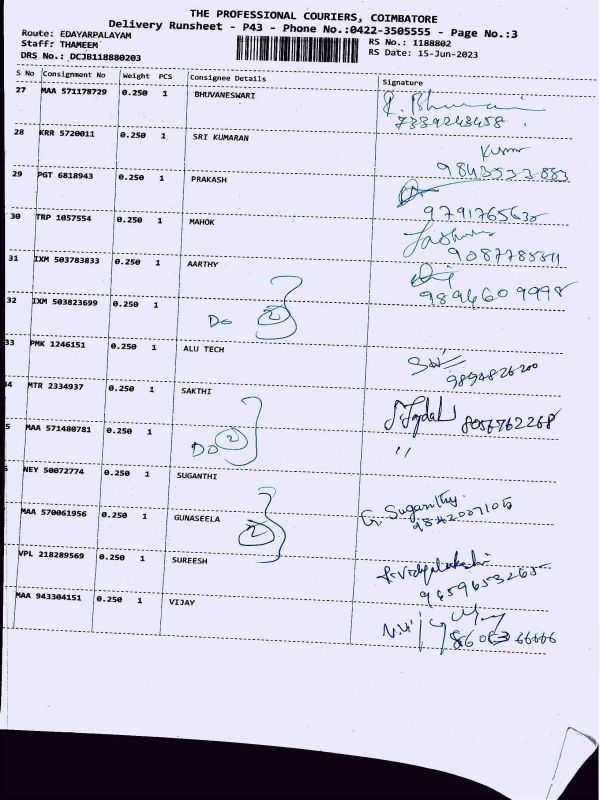 THE PROFESSIONAL COURIERS, COIMBATORE
Delivery Runsheet - P43 - Phone No.:0422-3505555 - Page No.:3
Route: EDAYARPALAYAM
Staff: THAMEEM RS No.: 1188802
DRS No.: DCJB118880203 RS Date: 15-Jun-2023
S No Consignment No Weight PCS Consignee Details Signature
27 MAA 571178729 0.250 1 BHUVANESWARI
7339248458
28 KRR 5720011 0.250 1 SRI KUMARAN Kumar
9843533883
29 PGT 6818943 0.250 1 PRAKASH
9791765635
30 TRP 1057554 0.250 1 MAHOK
31 IXM 503783833 0.250 1 AARTHY
9894609998
32 IXM 503823699 0.250 1 Do 2
33 PMK 1246151 0.250 1 ALU TECH
9894826200
4 MTR 2334937 0.250 1 SAKTHI
8056762268
5 MAA 571480781 0.250 1 Do 2 "
6 NEY 50072774 0.250 1 SUGANTHI
G. Suganthy
9842007105
MAA 570061956 0.250 1 GUNASEELA 2
VPL 218289569 0.250 1 SUREESH
9659653265
MAA 943304151 0.250 1 VIJAY